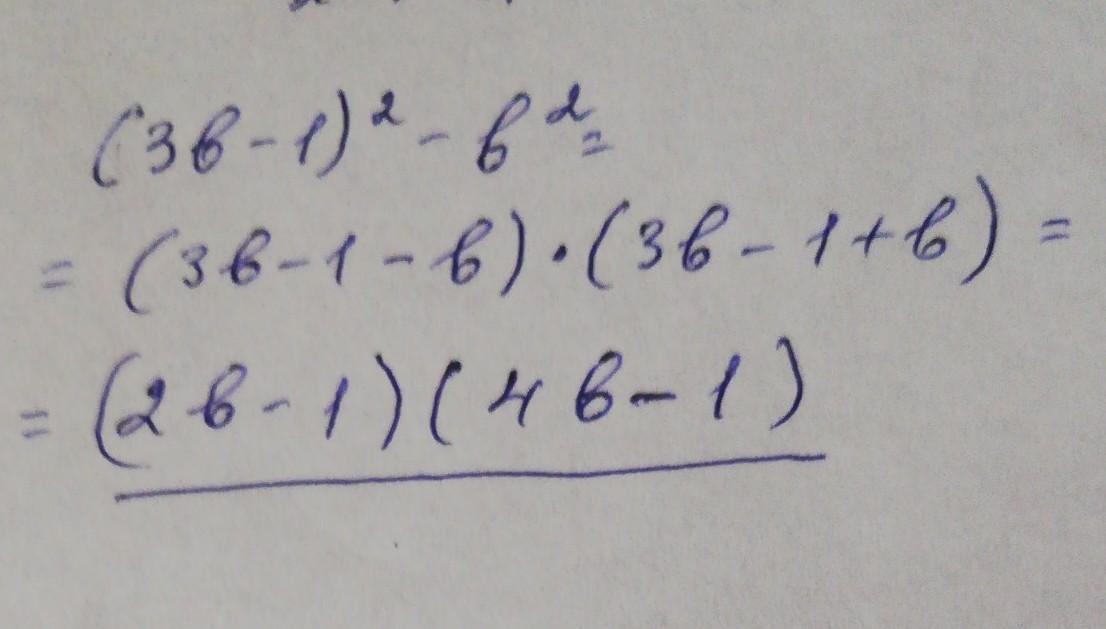 (3b-1)² - b² =
= (3b-1-b)·(3b-1+b) =
= (2b-1)(4b-1)